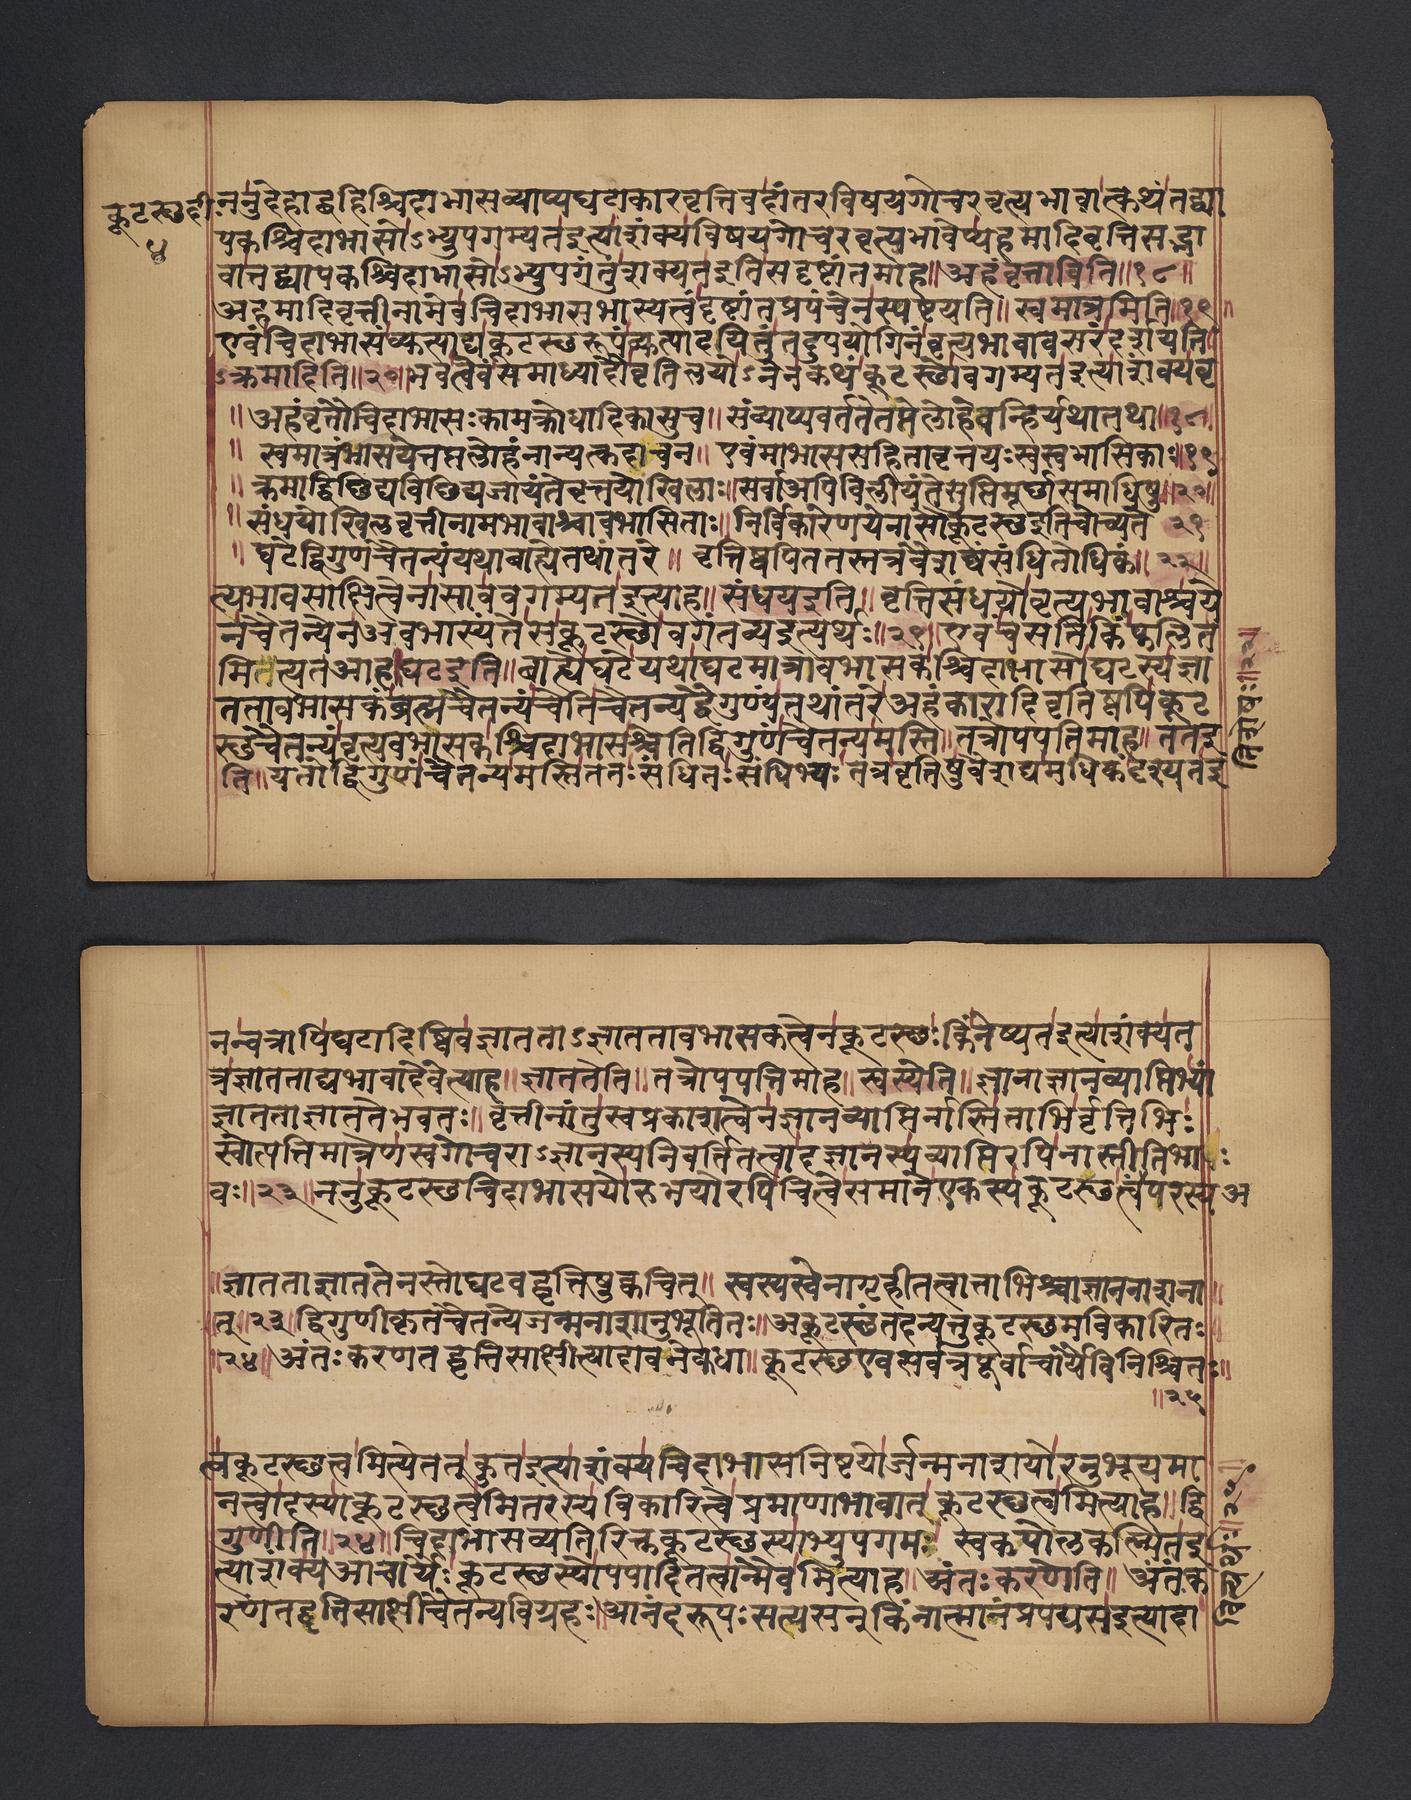 कूटस्थदी०
४
ननुदेहाद्बहिश्चिदाभासव्याप्यघटाकारवृत्तिवदांतरविषयगोचरवृत्यभावात्कथंतद्व्या
पकश्चिदाभासोऽभ्युपगम्यतइत्याशंक्यविषयगोचरवृत्यभावेप्यहमादिवृत्तिसद्भा
वात्तद्व्यापकश्चिदाभासोऽभ्युपगंतुंशक्यतइतिसदृष्टांतमाह॥अहंवृत्ताविति॥१८॥
अहमादिवृत्तीनामेवचिदाभासभास्यत्वंदृष्टांतप्रपंचेनस्पष्टयति॥स्वमात्रमिति॥१९॥
एवंचिदाभासंव्यक्त्पाद्यकूटस्थरूपंव्यक्त्पादयितुंतदुपयोगिनंवृत्यभावावसरंदर्शयति
ऽक्रमादिति॥२०॥भवत्वेवंसमाध्यादौवृतिलयोऽनेनकथंकूटस्थोवगम्यतइत्याशंक्यवृ
॥अहंवृत्तौचिदाभासःकामक्रोधादिकासुच॥संव्याप्यवर्ततेतप्तेलोहेवन्हिर्यथातथा॥१८॥
॥स्वमात्रंभासयेत्तप्तंलोहंनान्यत्कदाचन॥एवंमाभाससहितावृत्तयःस्वस्वभासिकाः॥१९
॥क्रमाद्विछिद्यविछिद्यजायंतेवृत्तयोखिलाः॥सर्वाअपिविलीयंतेसुप्तिमूर्छासमाधिषु॥२०॥
॥संधयोखिलवृत्तीनामभावाश्चावभासिताः॥निर्विकारेणयेनासौकूटस्थइतिचोच्यते २१
॥घटेद्विगुणचैतन्यंयथाबाह्येतथांतरे॥वृत्तिष्वपिततस्तत्रवैशद्यंसंधितोधिकं॥२२॥
त्यभावसाक्षित्वेनासाववगम्यतइत्याह॥संधयइति॥वृत्तिसंधयोवृत्यभावाश्चये
नचैतन्येनअवभास्यंतेसकूटस्थोवगंतव्यइत्यर्थः॥२१॥एवंचसतिकिंफलित
मित्यतआह॥घटइति॥बाह्येघटेयथाघटमात्रावभासकश्चिदाभासोघटस्यज्ञा
ततावभासकंब्रह्मचैतन्यंचेतिचैतन्यद्वैगुण्यंतथांतरेअहंकारादिवृतिष्वपिकूट
स्थचैतन्यंवृत्यवभासकश्चिदाभासश्चेतिद्विगुणंचैतन्यमस्ति॥तत्रोपपतिमाह॥ततइ
ति॥यतोद्विगुणंचैतन्यमस्तिततःसंधितःसंधिभ्यःतत्रवृत्तिषुवैशद्यमधिकंदृश्यतइ
नन्वत्रापिघटादिष्विवज्ञातताऽज्ञाततावभासकत्वेनकूटस्थःकिंनेष्यतइत्याशंक्यत
त्रज्ञातताद्यभावादेवेत्याह॥ज्ञाततेति॥तत्रोपपत्तिमाह॥स्वस्येति॥ज्ञानाज्ञानव्याप्तिभ्यां
ज्ञातताज्ञाततेभवतः॥वृत्तीनांतुस्वप्रकाशत्वेनज्ञानव्याप्तिर्नास्तिताभिर्वृत्तिभिः
स्वोत्पत्तिमात्रेणस्वगोचराऽज्ञानस्यनिवर्तितत्वादज्ञानस्यव्याप्तिरपिनास्तीतिभा
वः॥२३॥ननुकूटस्थचिदाभासयोरुभयोरपिचित्वेसमानेएकस्यकूटस्थत्वंपरस्यअ
॥ज्ञातताज्ञाततेनस्तोघटवद्वृत्तिषुक्वचित्॥स्वस्यस्वेनागृहीतत्वात्ताभिश्चाज्ञाननाशना॥
त्॥२३॥द्विगुणीकृतचैतन्येजन्मनाशानुभूतितः॥अकूटस्थंतदन्यत्तुकूटस्थमविकारितः॥
॥२४॥अंतःकरणतद्वृत्तिसाक्षीत्यादावनेकधा॥कूटस्थएवसर्वत्रपूर्वाचार्यैर्विनिश्चितः॥
॥२५
त्वकूटस्थत्वमित्येतत्कुतइत्याशंक्यचिदाभासनिष्टयोर्जन्मनाशयोरनुभूयमा
नत्वादस्याकूटस्थत्वमितरस्यविकारित्वेप्रमाणाभावात्कूटस्थत्वमित्याह॥द्वि
गुणीति॥२४॥चिदाभासव्यतिरिक्तकूटस्थस्याभ्युपगमःस्वकपोलकल्पितइ
त्याशंक्यआचार्यैःकूटस्थस्योपपादितत्वान्मैवमित्याह॥अंतःकरणेति॥अंतंक
रणतद्वृत्तिसाक्षीचैतन्यविग्रहः॥आनंदरूपःसत्यःसन्किंनात्मानंप्रपद्यसइत्यादा